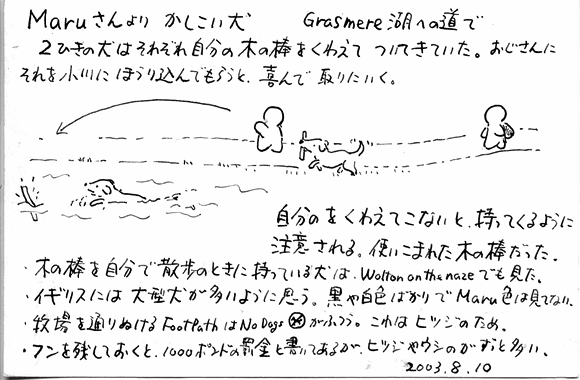 Maruさんより かしこい犬 Grasmere 湖への道で
2ひきの犬はそれぞれ自分の木の棒をくわえて ついてきていた。おじさんに
それを小川に ほうり込んでもらうと、喜んで 取りにいく。
自分のをくわえてこないと、持ってくるように
注意される。使いこまれた木の棒だった。
・木の棒を自分で散歩のときに持っている犬は、Walton on the nazeでも見た。
・イギリスには 大型犬が多いように思う。黒や白色ばかりでMaru色は見てない。
・牧場を通りぬけるFootPathはNo Dogs がふつう。これはヒツジのため。
・フンを残しておくと、1000ポンドの罰金と書いてあるが、ヒツジやウシのがずっと多い。
2003.8.10